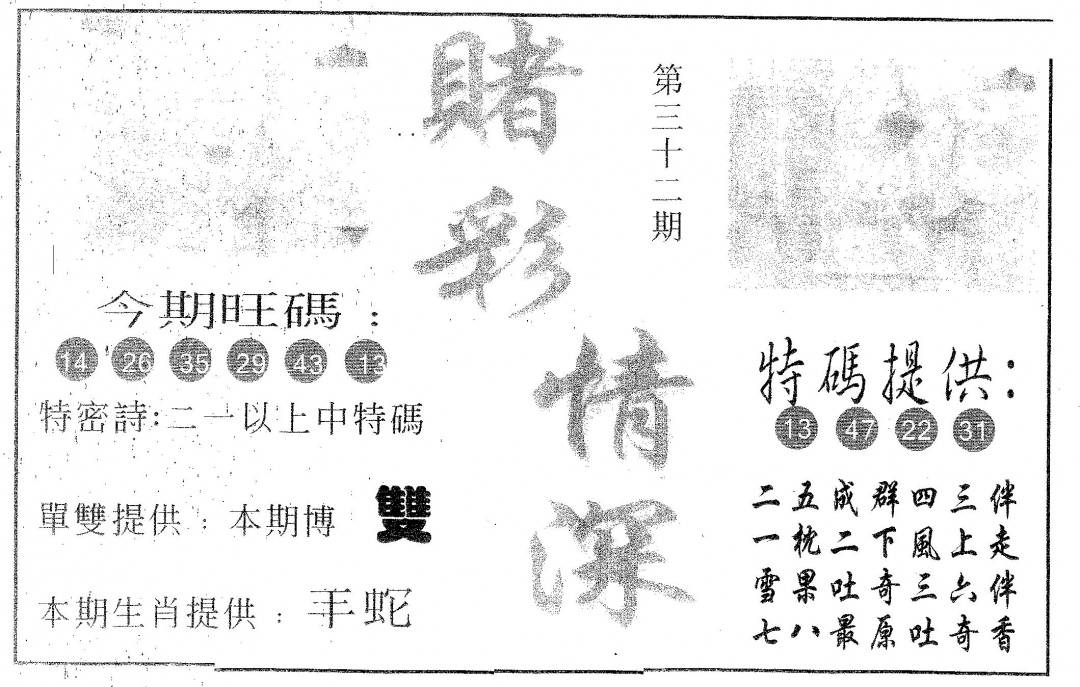 賭彩情深
第三十二期
今期旺碼：
14 26 35 29 43 13
特密詩：二一以上中特碼
單雙提供：本期博 雙
本期生肖提供：羊蛇
特碼提供：
13 47 22 31
二五成群四三伴
一枕二下風上走
雪果吐奇三六伴
七八最原吐奇香